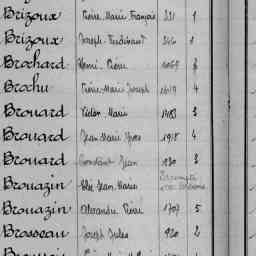 Brizoux Pierre Marie François 221 1
Brizoux Joseph Ferdinand 566 1
Brochard Henri Pierre 1069 3
Brochu Pierre Marie Joseph 1619 4
Brouard Victor Marie 1483 3
Brouard Jean Marie Yves 1918 4
Brouard Constant Jean 930 3
Brouazin Jean Marie
Brouazin Alexandre René 1707 5
Brosseau Joseph Jules 920 2